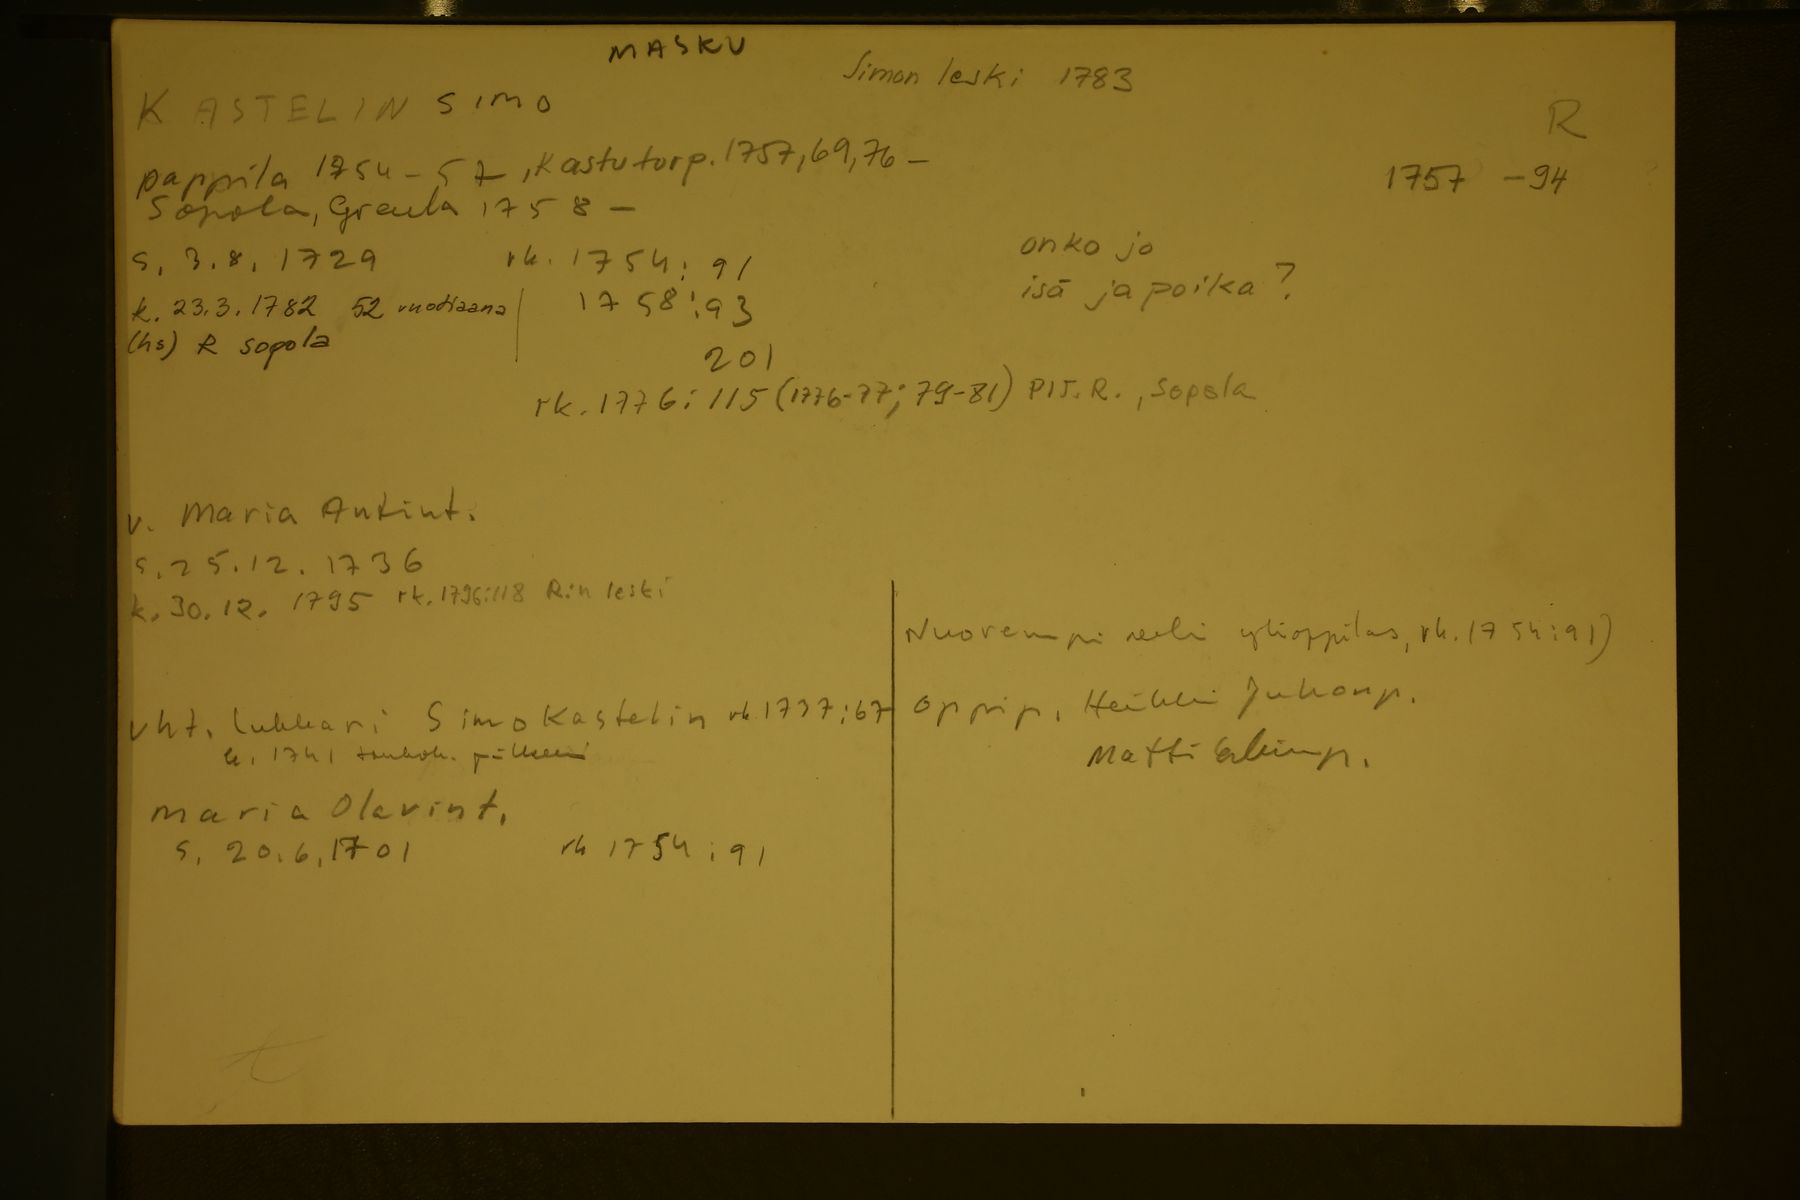 MASKU
Simon leski 1783
KASTELIN SIMO
R
pappila 1754-57, Kastu torp. 1757, 69, 76 -
1757 - 94
Sopola, Greula 1758 -
s. 3.8.1729 rk. 1754:91
onko jo
k. 23.3.1782 52 vuotiaana 1758:93
isä ja poika?
(hs) R sopola
201
rk. 1776:115 (1776-77; 79-81) P15. R., Sopola
v. Maria Antint.
s. 25.12.1736
k. 30.12.1795 rk. 1796:118 R:n leski
Nuorempi veli ylioppilas, rk. 1754:91)
vht. lukkari Simo Kastelin rk. 1737:67
Oppip. Heikki Juhonp.
k. 1741 toukok. jälkeen
Matti
Maria Olavint.
s. 20.6.1701 rk 1754:91